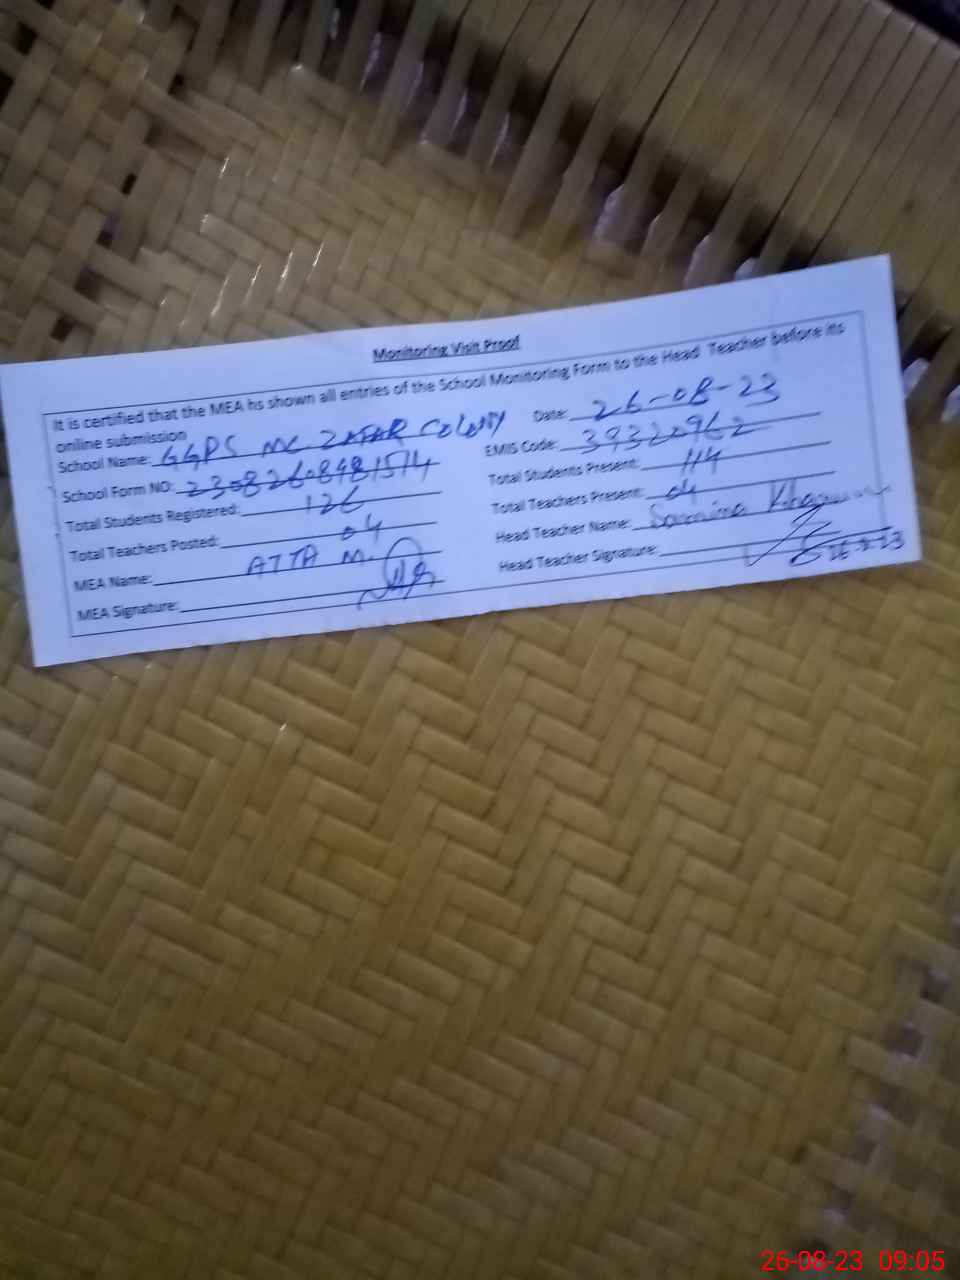 Monitoring Visit Proof
It is certified that the MEA hs shown all entries of the School Monitoring Form to the Head Teacher before its
online submission
School Name: GGPS MC ZAFAR COLONY
Date: 26-08-23
School Form NO:
EMIS Code: 39320962
Total Students Registered: 126
Total Students Present: 114
Total Teachers Posted: 04
Total Teachers Present: 04
MEA Name: ATTA M.
Head Teacher Name: Samina
MEA Signature:
Head Teacher Signature:
26-8-23
26-08-23 09:05